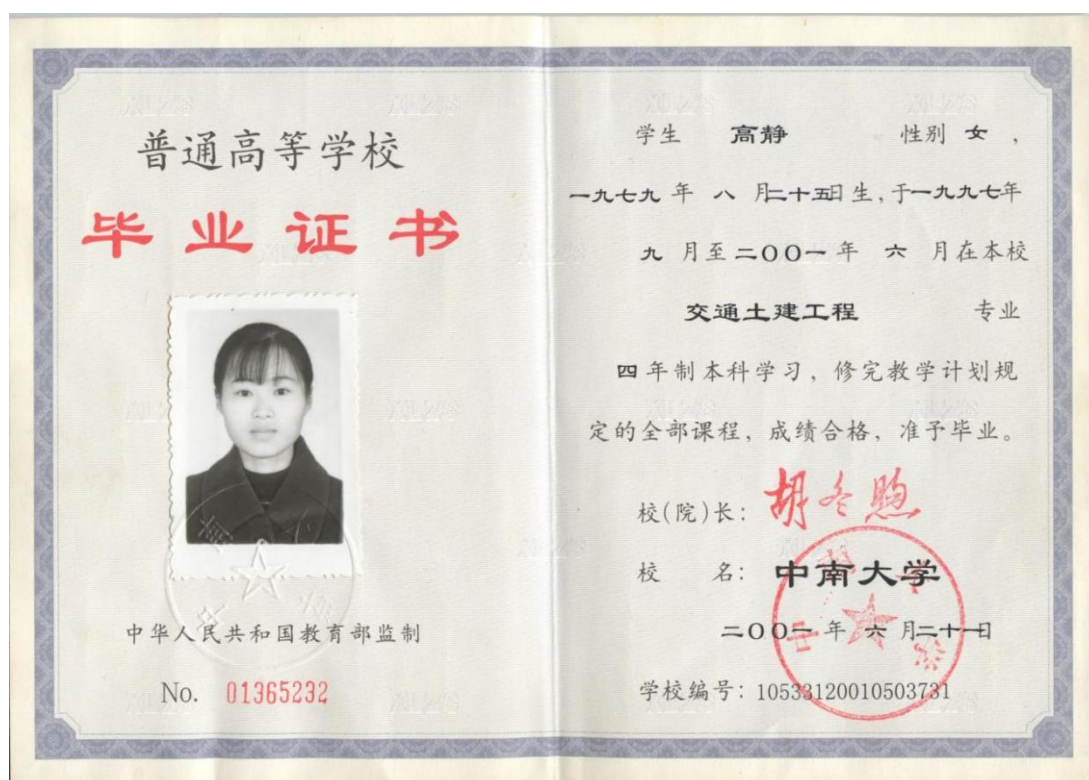 普通高等学校
毕业证书
中华人民共和国教育部监制
No. 01365232
学生 高静 性别 女,
一九七九 年 八 月二十五日 生,于一九九七年
九 月至 二〇〇一 年 六 月在本校
交通土建工程 专业
四 年制 本科学习,修完教学计划规
定的全部课程,成绩合格,准予毕业。
校(院)长:
校 名: 中南大学
二〇〇一 年 六 月二十一日
学校编号:10533120010503731